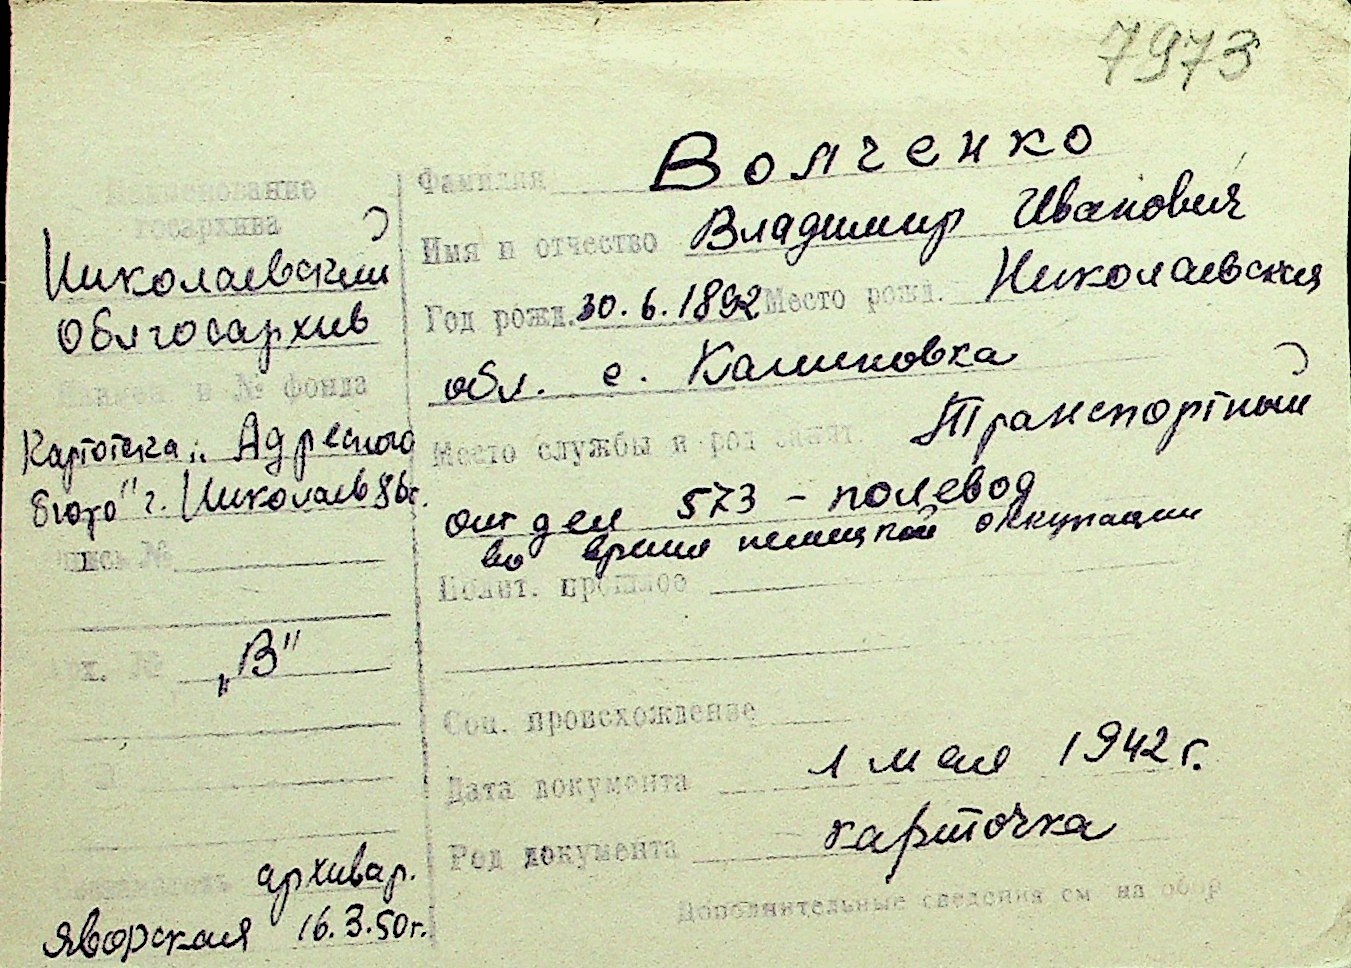 7973
Наименование
госархива
Николаевский
Облгосархив
Наимен. и № фонда
Картотека „Адресного
бюро" г. Николаев
Опись №
Арх. № „В"
архивар.
Яворская 16.3.50г.
Фамилия Волченко
Имя и отчество Владимир Иванович
Год рожд. 30.6.1892 Место рожд. Николаевская
обл. с. Калиновка
Место службы и род занят. Транспортный
отдел 573 – полевод
во время немецкой оккупации
Полит. прошлое
Соц. происхождение
Дата документа 1 мая 1942 г.
Род документа карточка
Дополнительные сведения см на обор